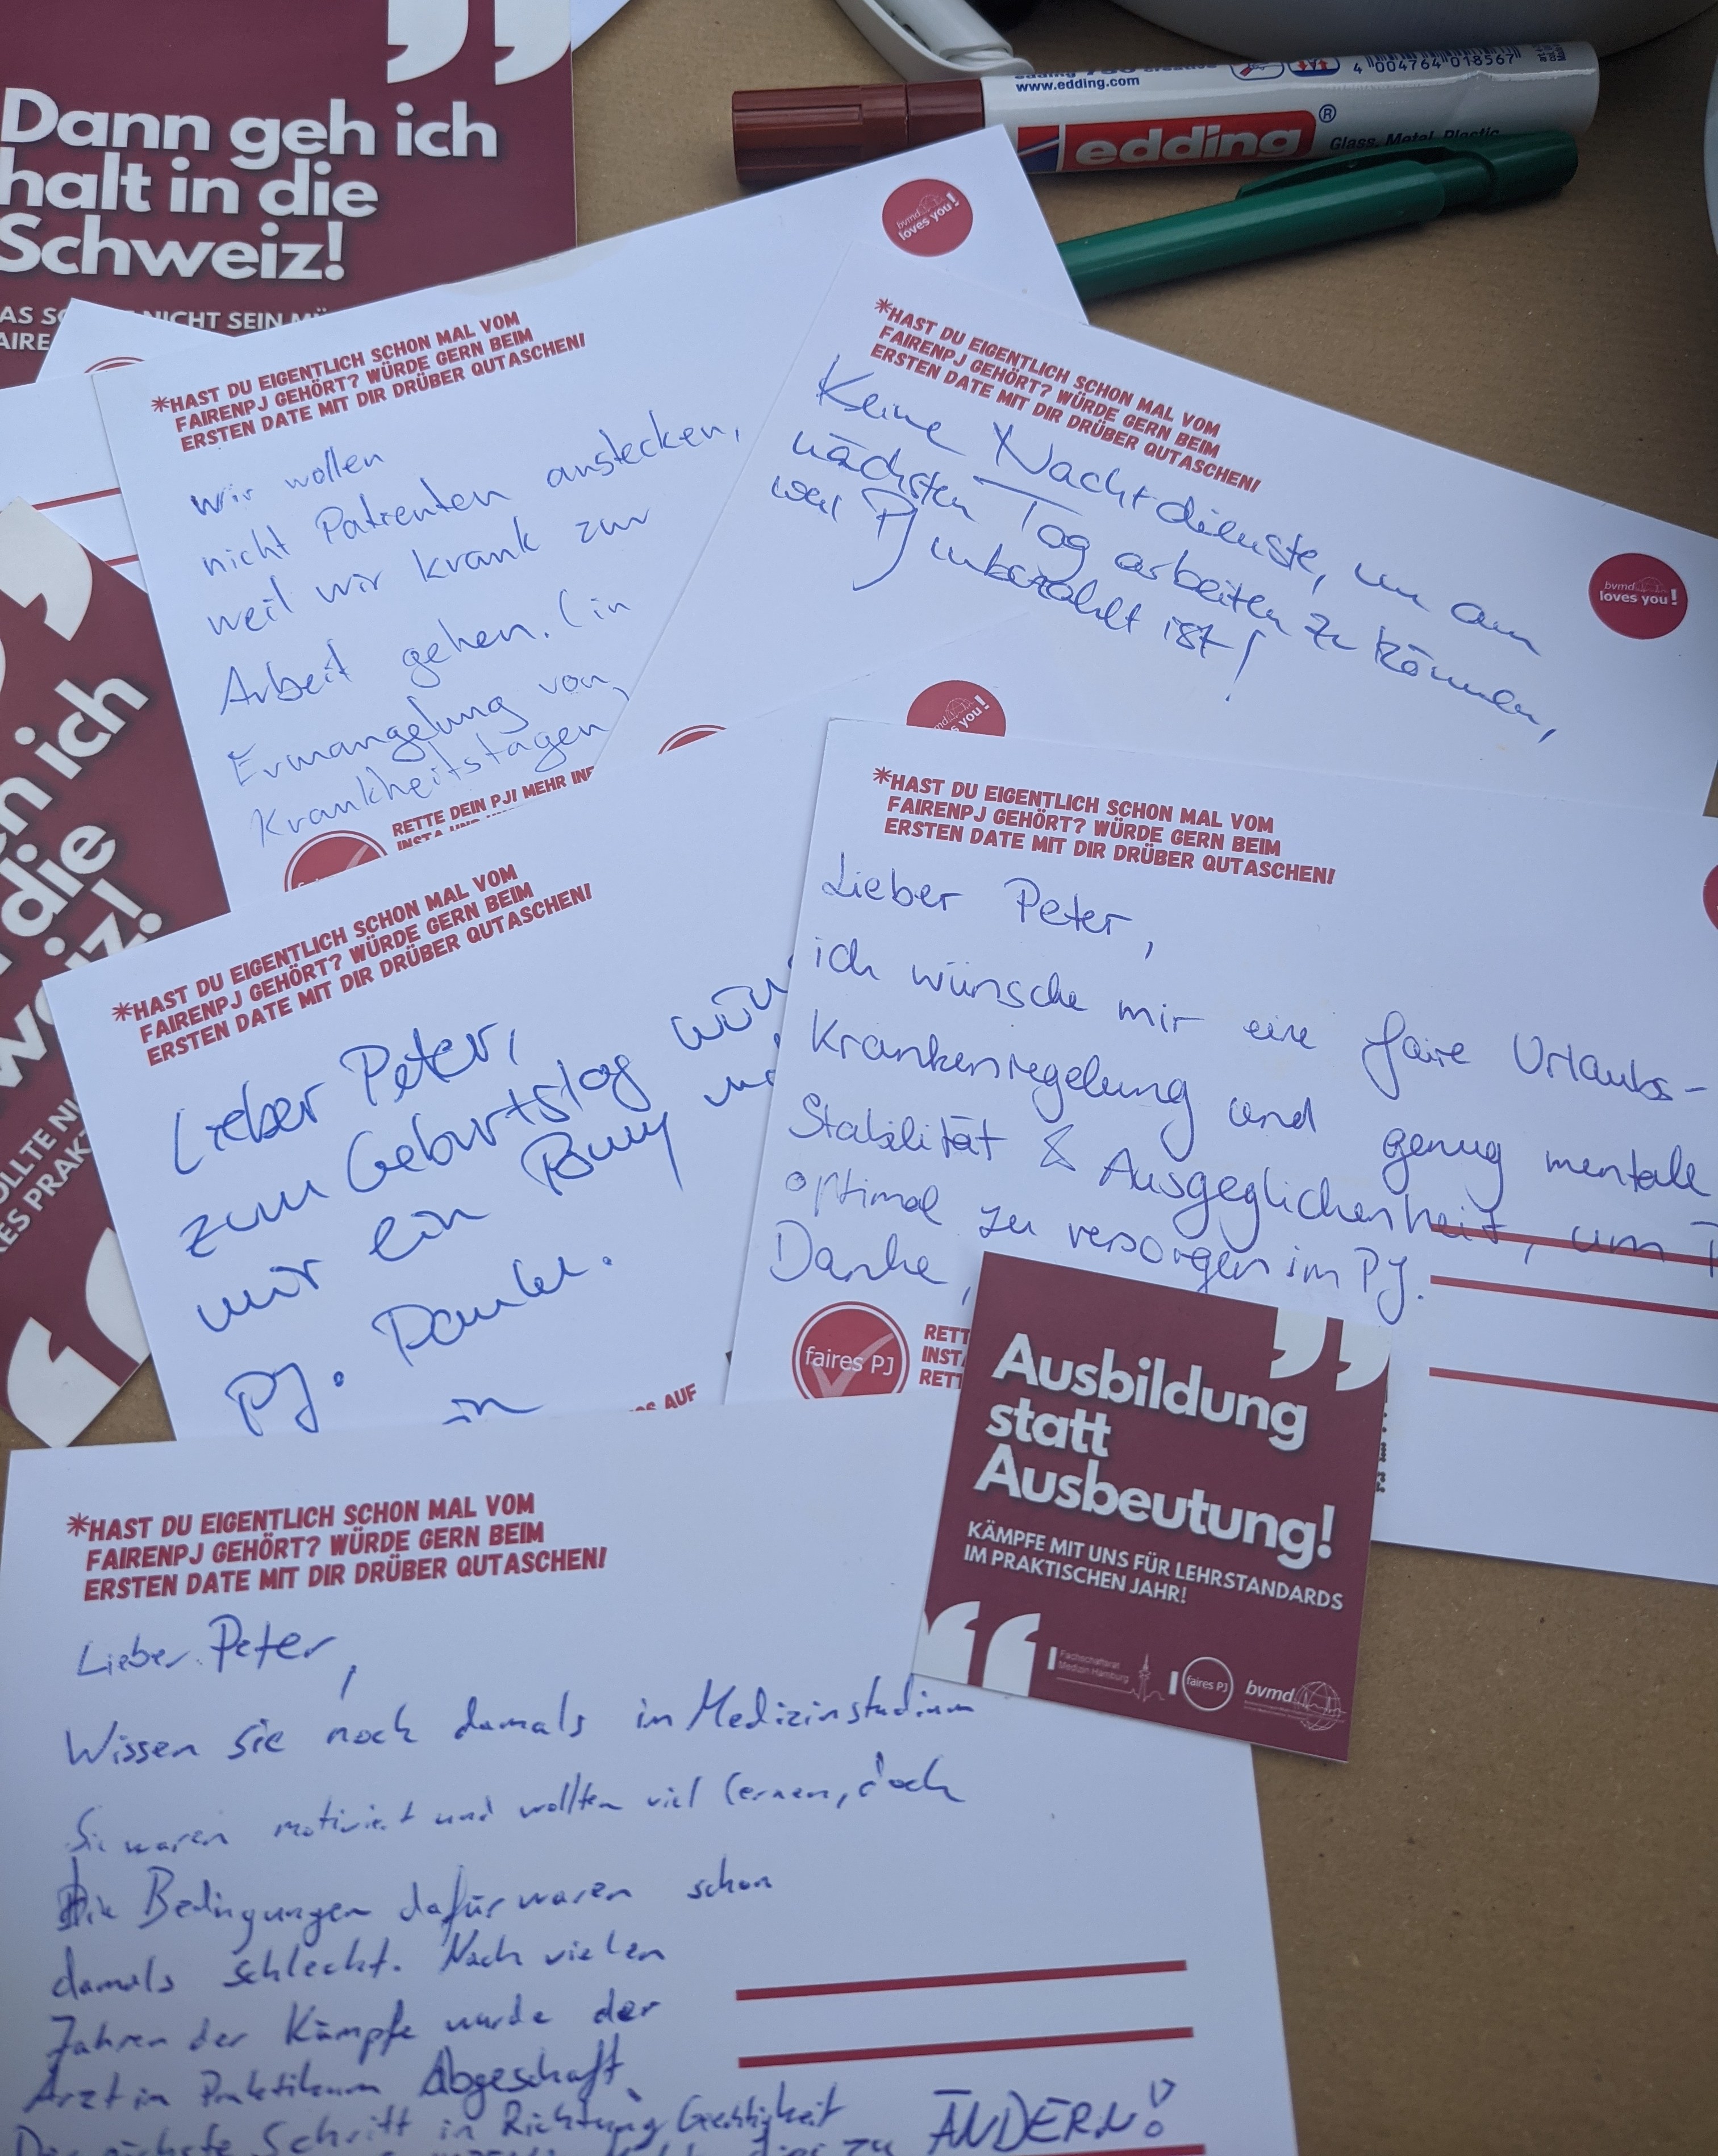 Dann geh ich
halt in die
Schweiz!
NICHT SEIN
www.edding.com
4 004764 018567
edding
®
Glass, Metal, Plastic
bvmd
loves you!
*HAST DU EIGENTLICH SCHON MAL VOM
FAIRENPJ GEHÖRT? WÜRDE GERN BEIM
ERSTEN DATE MIT DIR DRÜBER QUTASCHEN!
wir wollen
nicht Patienten anstecken,
weil wir krank zur
Arbeit gehen. (in
Ermangelung von
Krankheitstagen
RETTE DEIN PJ! MEHR
*HAST DU EIGENTLICH SCHON MAL VOM
FAIRENPJ GEHÖRT? WÜRDE GERN BEIM
ERSTEN DATE MIT DIR DRÜBER QUTASCHEN!
Keine Nachtdienste, um am
nächsten Tag arbeiten zu können,
weil PJ unbezahlt ist!
bvmd
loves you!
ich
die
*HAST DU EIGENTLICH SCHON MAL VOM
FAIRENPJ GEHÖRT? WÜRDE GERN BEIM
ERSTEN DATE MIT DIR DRÜBER QUTASCHEN!
Lieber Peter,
zum Geburtstag
mir ein
PJ. Danke.
AUF
you!
*HAST DU EIGENTLICH SCHON MAL VOM
FAIRENPJ GEHÖRT? WÜRDE GERN BEIM
ERSTEN DATE MIT DIR DRÜBER QUTASCHEN!
Lieber Peter,
ich wünsche mir eine faire Urlaubs-
Krankenregelung und genug mentale
Stabilität & Ausgeglichenheit, um
optimal zu versorgen im PJ.
Danke,
faires PJ
Ausbildung
statt
Ausbeutung!
KÄMPFE MIT UNS FÜR LEHRSTANDARDS
IM PRAKTISCHEN JAHR!
Fachschaftsrat
Medizin Hamburg
faires PJ
bvmd
*HAST DU EIGENTLICH SCHON MAL VOM
FAIRENPJ GEHÖRT? WÜRDE GERN BEIM
ERSTEN DATE MIT DIR DRÜBER QUTASCHEN!
Lieber Peter,
Wissen sie noch damals im Medizinstudium
Sie waren motiviert und wollten viel lernen, doch
Die Bedingungen dafür waren schon
damals schlecht. Nach vielen
Jahren der Kämpfe wurde der
Arzt im Praktikum Abgeschaft.
Der nächste Schritt in Richtung
zu ÄNDERN!